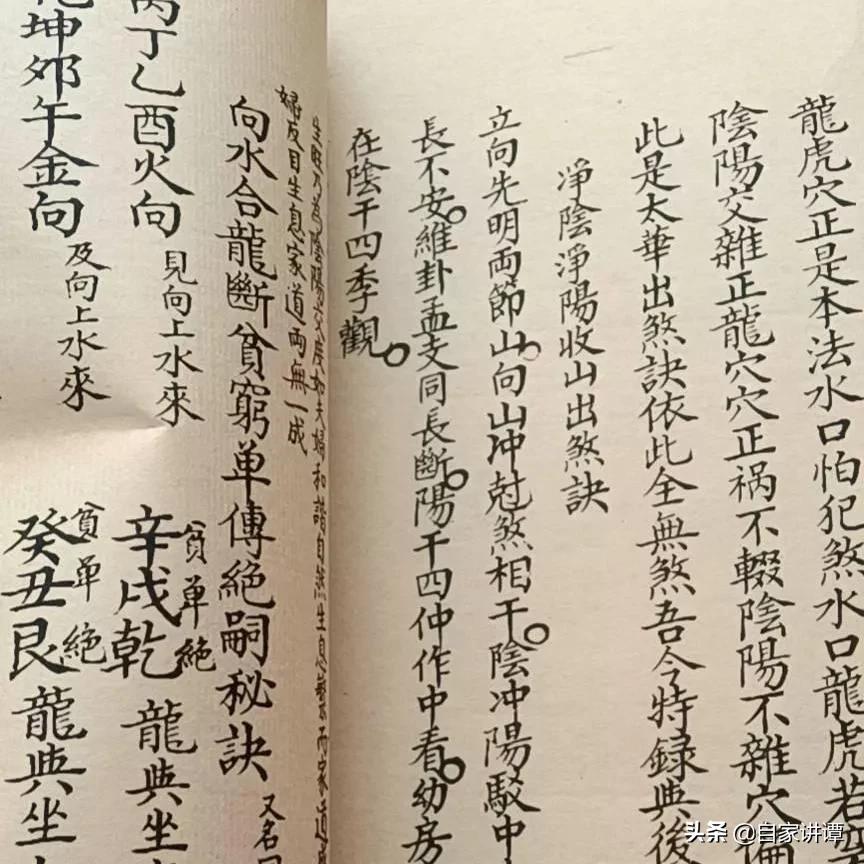 龍虎穴正是本法水口怕犯煞水口龍虎若
陰陽交雜正龍穴穴正祸不輟陰陽不雜穴
此是太華出煞訣依此全無煞吾今特録與後
淨陰淨陽收山出煞訣
立向先明両節山向山冲尅煞相干陰冲陽駁中
長不安維卦孟支同長斷陽干四仲作中看幼房
在陰干四季觀
生旺乃為陰陽交度如夫婦和諧自然生息繁而家道
婦反目生息家道両無一成
向水合龍斷貧窮单傳絕嗣秘訣
又名
丙丁乙酉火向 見向上水來
貧单絕
辛戌乾龍與坐
坤郊午金向 及向上水來
貧单絕
癸丑艮龍與坐
头条 @自家讲谭